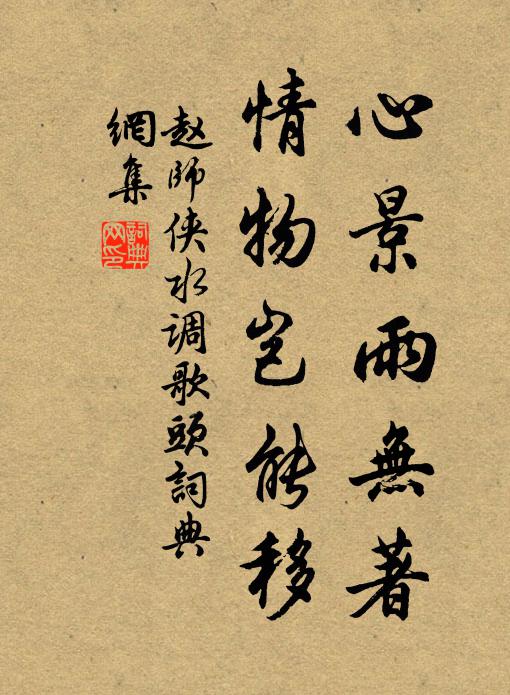 心景兩無著
情物豈能移
赵師侠水调歌頭詞典
網集
詞典
网印